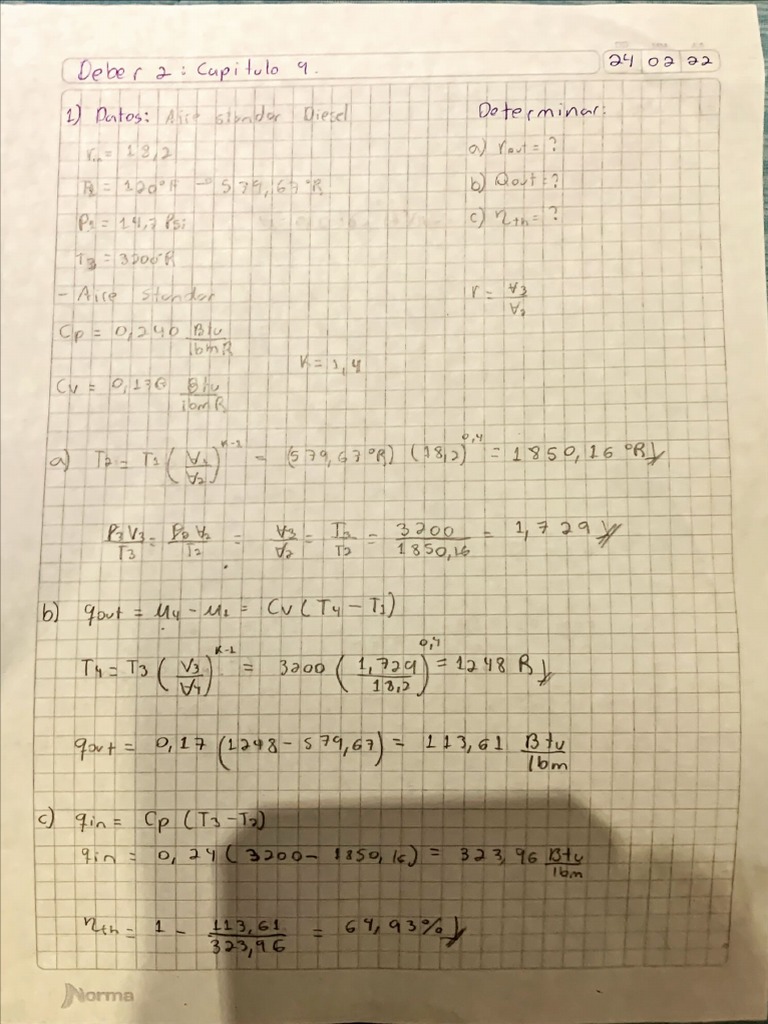 Deber 2: Capitulo 9.
24 02 22
1) Datos: Aire standar Diesel
Determinar:
= 18,2
a) rout = ?
= 120°F → 579,67°R
b) Qout = ?
= 14,7 Psi
c) ηth = ?
T3 = 3200°R
- Aire standar
r = V3/V2
Cp = 0,240 Btu/lbmR
K = 1,4
Cv = Btu/lbmR
a) T2 = T1 (V1/V2)^K-1 = (579,67°R) (18,2)^0,4 = 1850,16 °R
P3 V3/T3 = P2 V2/T2 = V3/V2 = T3/T2 = 3200/1850,16 = 1,729
b) qout = u4 - u1 = Cv (T4 - T1)
T4 = T3 (V3/V4)^K-1 = 3200 (1,729/18,2)^0,4 = 1248 R
qout = 0,17 (1248 - 579,67) = 113,61 Btu/lbm
c) qin = Cp (T3 - T2)
qin = 0,24 (3200 - 1850,16) = 323,96 Btu/lbm
ηth = 1 - 113,61/323,96 = 64,93%
Norma